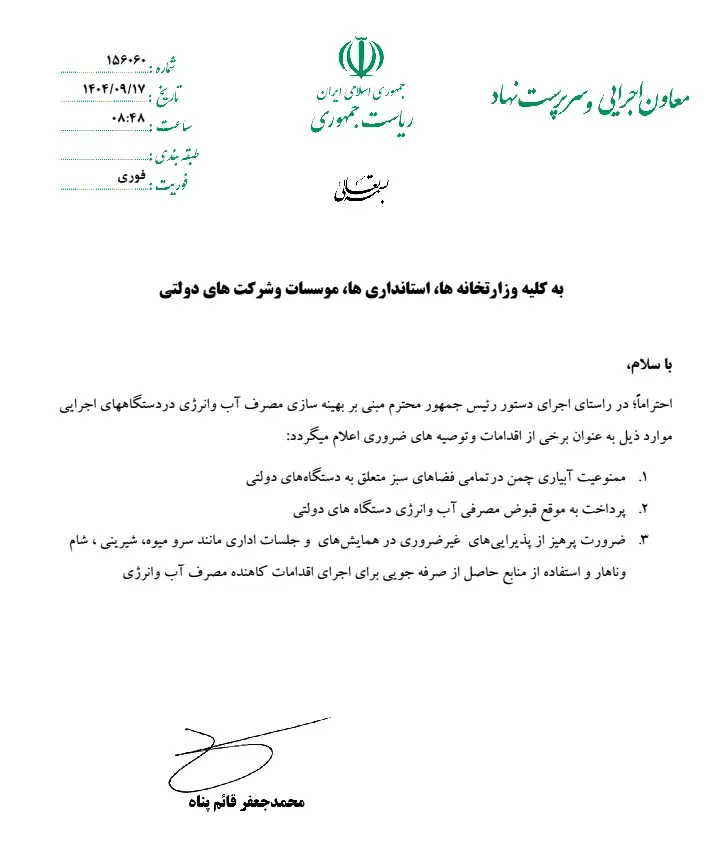 معاون اجرایی و سرپرست نهاد
جمهوری اسلامی ایران
ریاست جمهوری
شماره : ۱۵۶۰۶۰
تاریخ : ۱۴۰۴/۰۹/۱۷
ساعت : ۰۸:۴۸
طبقه بندی :
فوریت : فوری
بسمه تعالی
به کلیه وزارتخانه ها، استانداری ها، موسسات وشرکت های دولتی
با سلام،
احتراماً؛ در راستای اجرای دستور رئیس جمهور محترم مبنی بر بهینه سازی مصرف آب وانرژی دردستگاههای اجرایی
موارد ذیل به عنوان برخی از اقدامات وتوصیه های ضروری اعلام میگردد:
۱. ممنوعیت آبیاری چمن درتمامی فضاهای سبز متعلق به دستگاه‌های دولتی
۲. پرداخت به موقع قبوض مصرفی آب وانرژی دستگاه های دولتی
۳. ضرورت پرهیز از پذیرایی‌های غیرضروری در همایش‌های و جلسات اداری مانند سرو میوه، شیرینی ، شام
وناهار و استفاده از منابع حاصل از صرفه جویی برای اجرای اقدامات کاهنده مصرف آب وانرژی
محمدجعفر قائم پناه